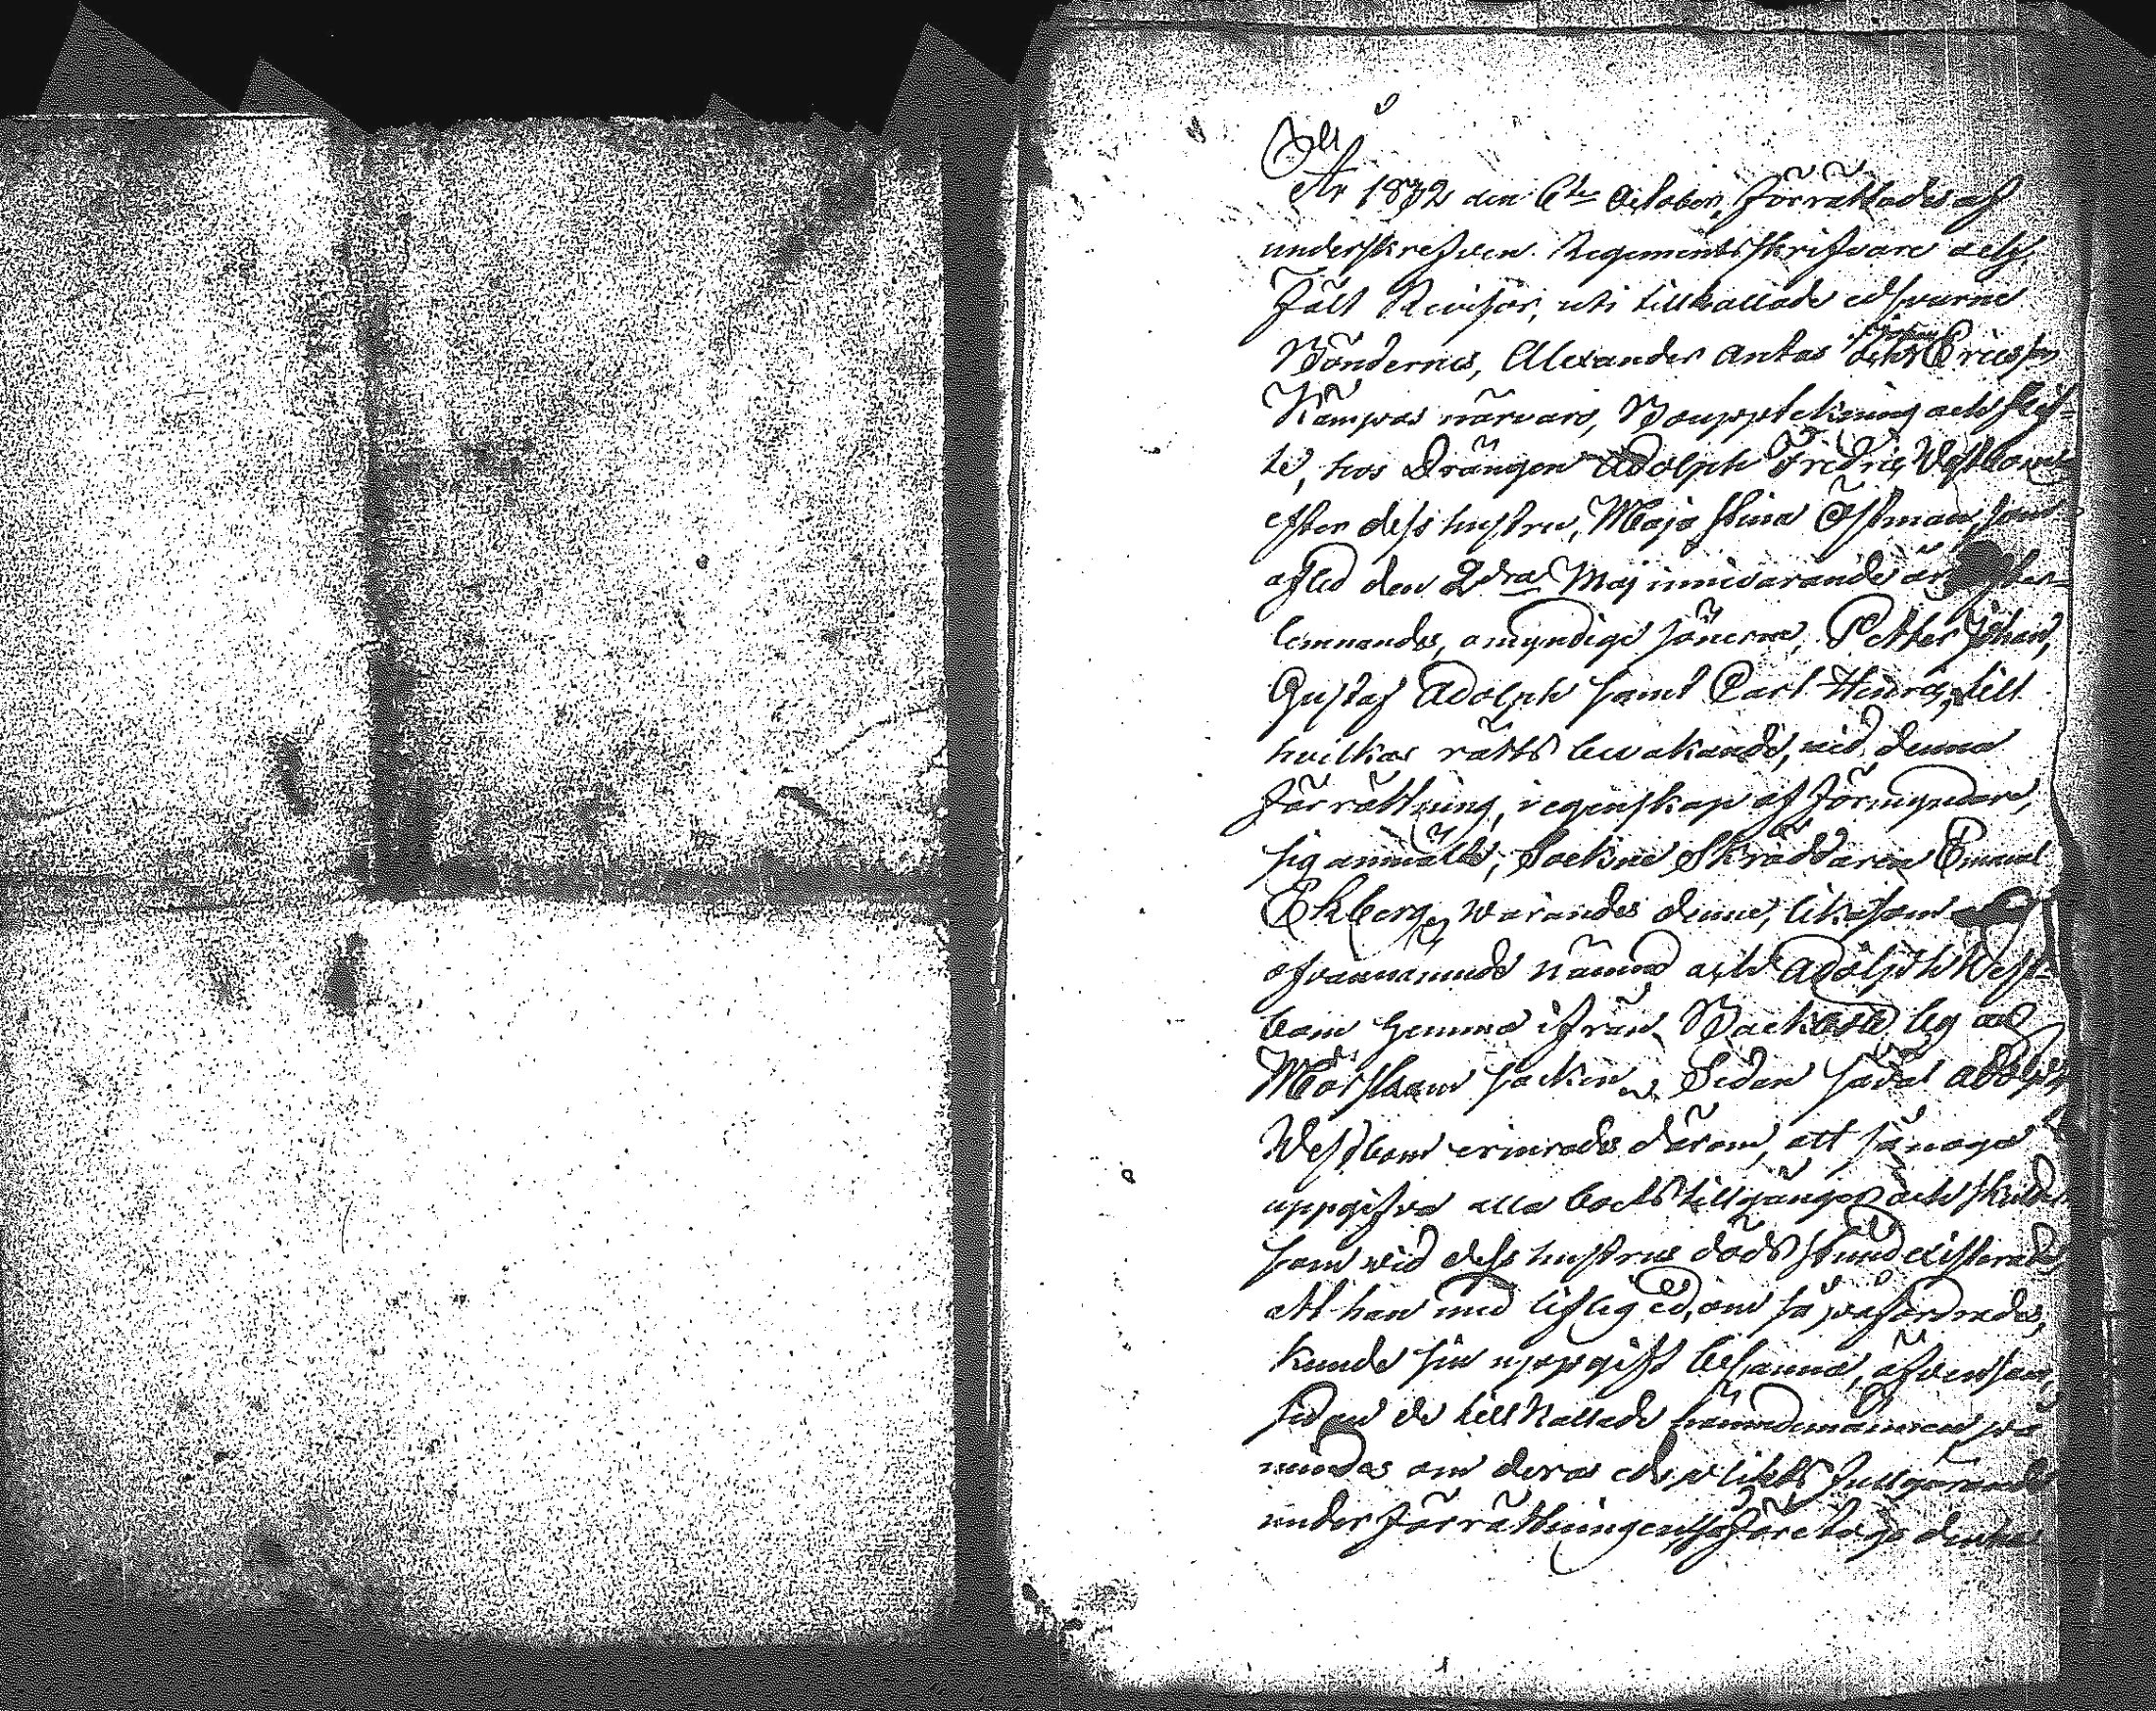 År 1832 den 6te October, förrättades af
underskrefven Regementsskrifvare och
Fält Revisor, uti tillkallade edsvurne
Böndernes, Alexander Antas och Johan Ericsson
Kämpas närvaro, Bouppteckning och skif-
te, hos Drängen Adolph Fredric Westbom
efter dess hustru, Maja Stina Östman, som
afled den 2dra Maj innevarande år efter-
lemnandes, omyndige sönerne, Petter Johan,
Gustaf Adolph samt Carl Henric, till
hvilkas rätts bevakande, vid denna
förrättning, i egenskap af förmyndare,
sig anmälte, Sockne Skräddaren Emanuel
Ekberg, warandes denne, likasom
ofvannämnde nämnd och Adolph West-
bom hemma ifrån Backa by och
Mörskom socken. Sedan sådal Adolph
Westbom erinrades därom, att så noga
uppgifva alla boets tillgångar och skulder
som vid dess hustrus dödsstund existerade
att han med liflig ed, om så påfordrades,
kunde sin uppgift besanna, äfvensom
sedan de tillkallade nämndemännen på
mindes om deras edspligts fullgörande
under förrättningen, så företogs denna